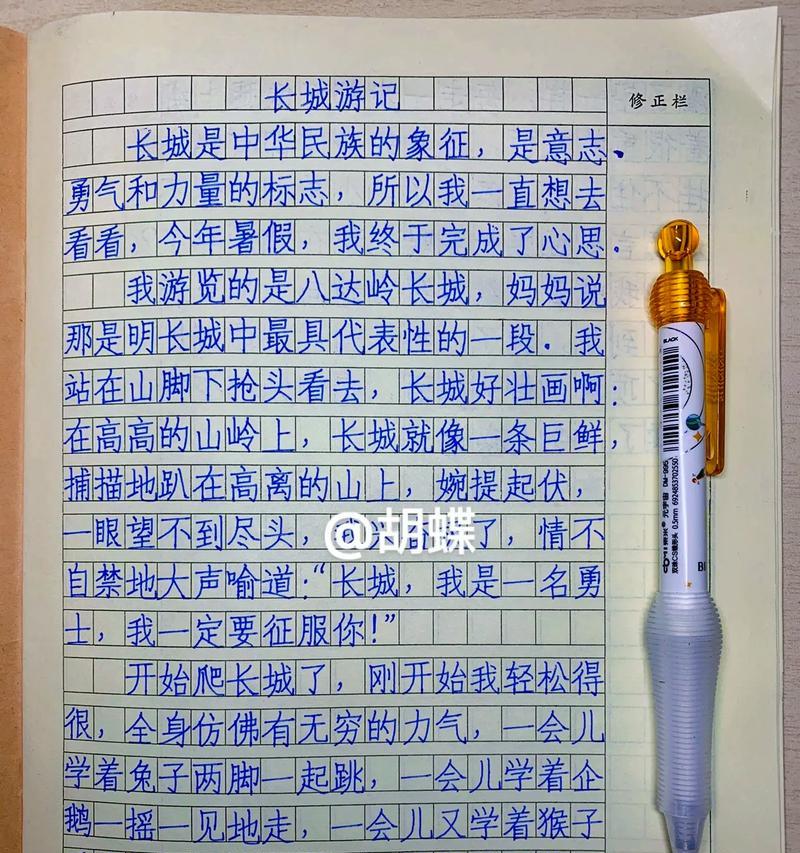 长城游记
修正栏
长城是中华民族的象征，是意志.
勇气和力量的标志，所以我一直想去
看看，今年暑假，我终于完成了心思.
我游览的是八达岭长城，妈妈说
那是明长城中最具代表性的一段.我
站在山脚下抢头看去，长城好壮画啊:
在高高的山岭上，长城就像一条巨鲜，
捕描地趴在高离的山上，婉提起伏，
一眼望不到尽头，了，情不
@胡蝶
自禁地大声喻道:“长城，我是一名勇
士，我一定要征服你!”
开始爬长城了，刚开始我轻松得
很，全身仿佛有无穷的力气，一会儿
学着兔子两脚一起跳，一会儿学着企
鹅一摇一见地走，一会儿又学着猴子
BLACK
元宇宙 DM-995
双珠CS锥形头 0.5mm 6924853702550